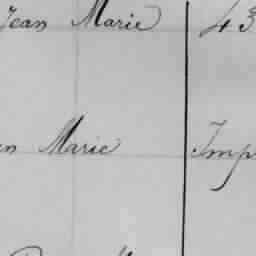 Jean Marie 43
Marie Imp